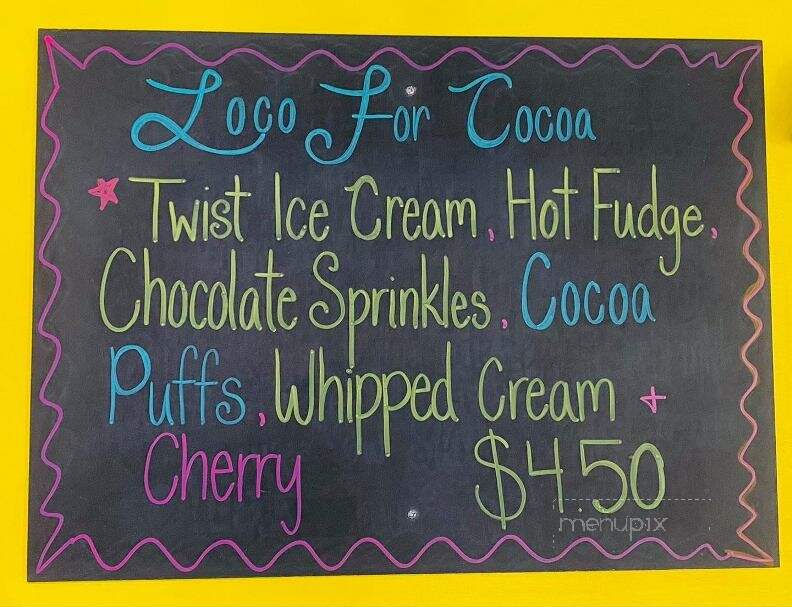 Loco For Cocoa
Twist Ice Cream, Hot Fudge,
Chocolate Sprinkles, Cocoa
Puffs, Whipped Cream +
Cherry $4.50
menupix